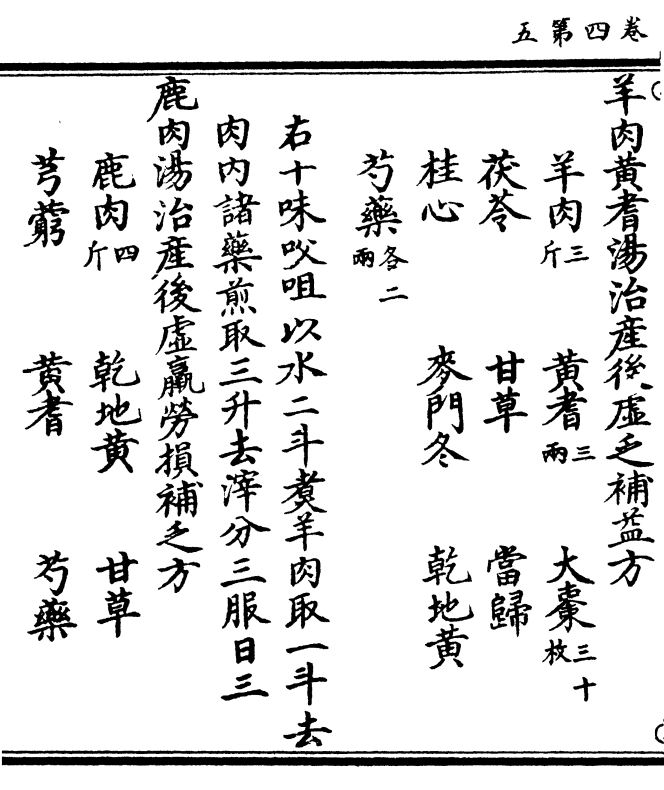 卷四第五
羊肉黄耆湯治産後虛乏補益方
羊肉三斤 黄耆三兩 大棗三十枚
茯苓 甘草 當歸
桂心 麥門冬 乾地黄
芍藥各二兩
右十味㕮咀以水二斗煑羊肉取一斗去
肉内諸藥煎取三升去滓分三服日三
鹿肉湯治産後虛羸勞損補乏方
鹿肉四斤 乾地黄 甘草
芎藭 黄耆 芍藥